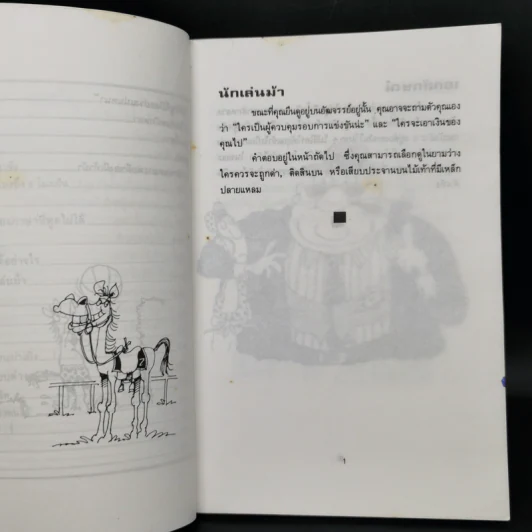 นักเล่นม้า
ขณะที่คุณยืนดูอยู่บนอัฒจรรย์อยู่นั้น คุณอาจจะถามตัวคุณเอง
ว่า "ใครเป็นผู้ควบคุมรอบการแข่งขันน่ะ" และ "ใครจะเอาเงินของ
คุณไป"
คำตอบอยู่ในหน้าถัดไป ซึ่งคุณสามารถเลือกดูในยามว่าง
ใครควรจะถูกด่า, ติดสินบน หรือเสียบประจานบนไม้เท้าที่มีเหล็ก
ปลายแหลม
1